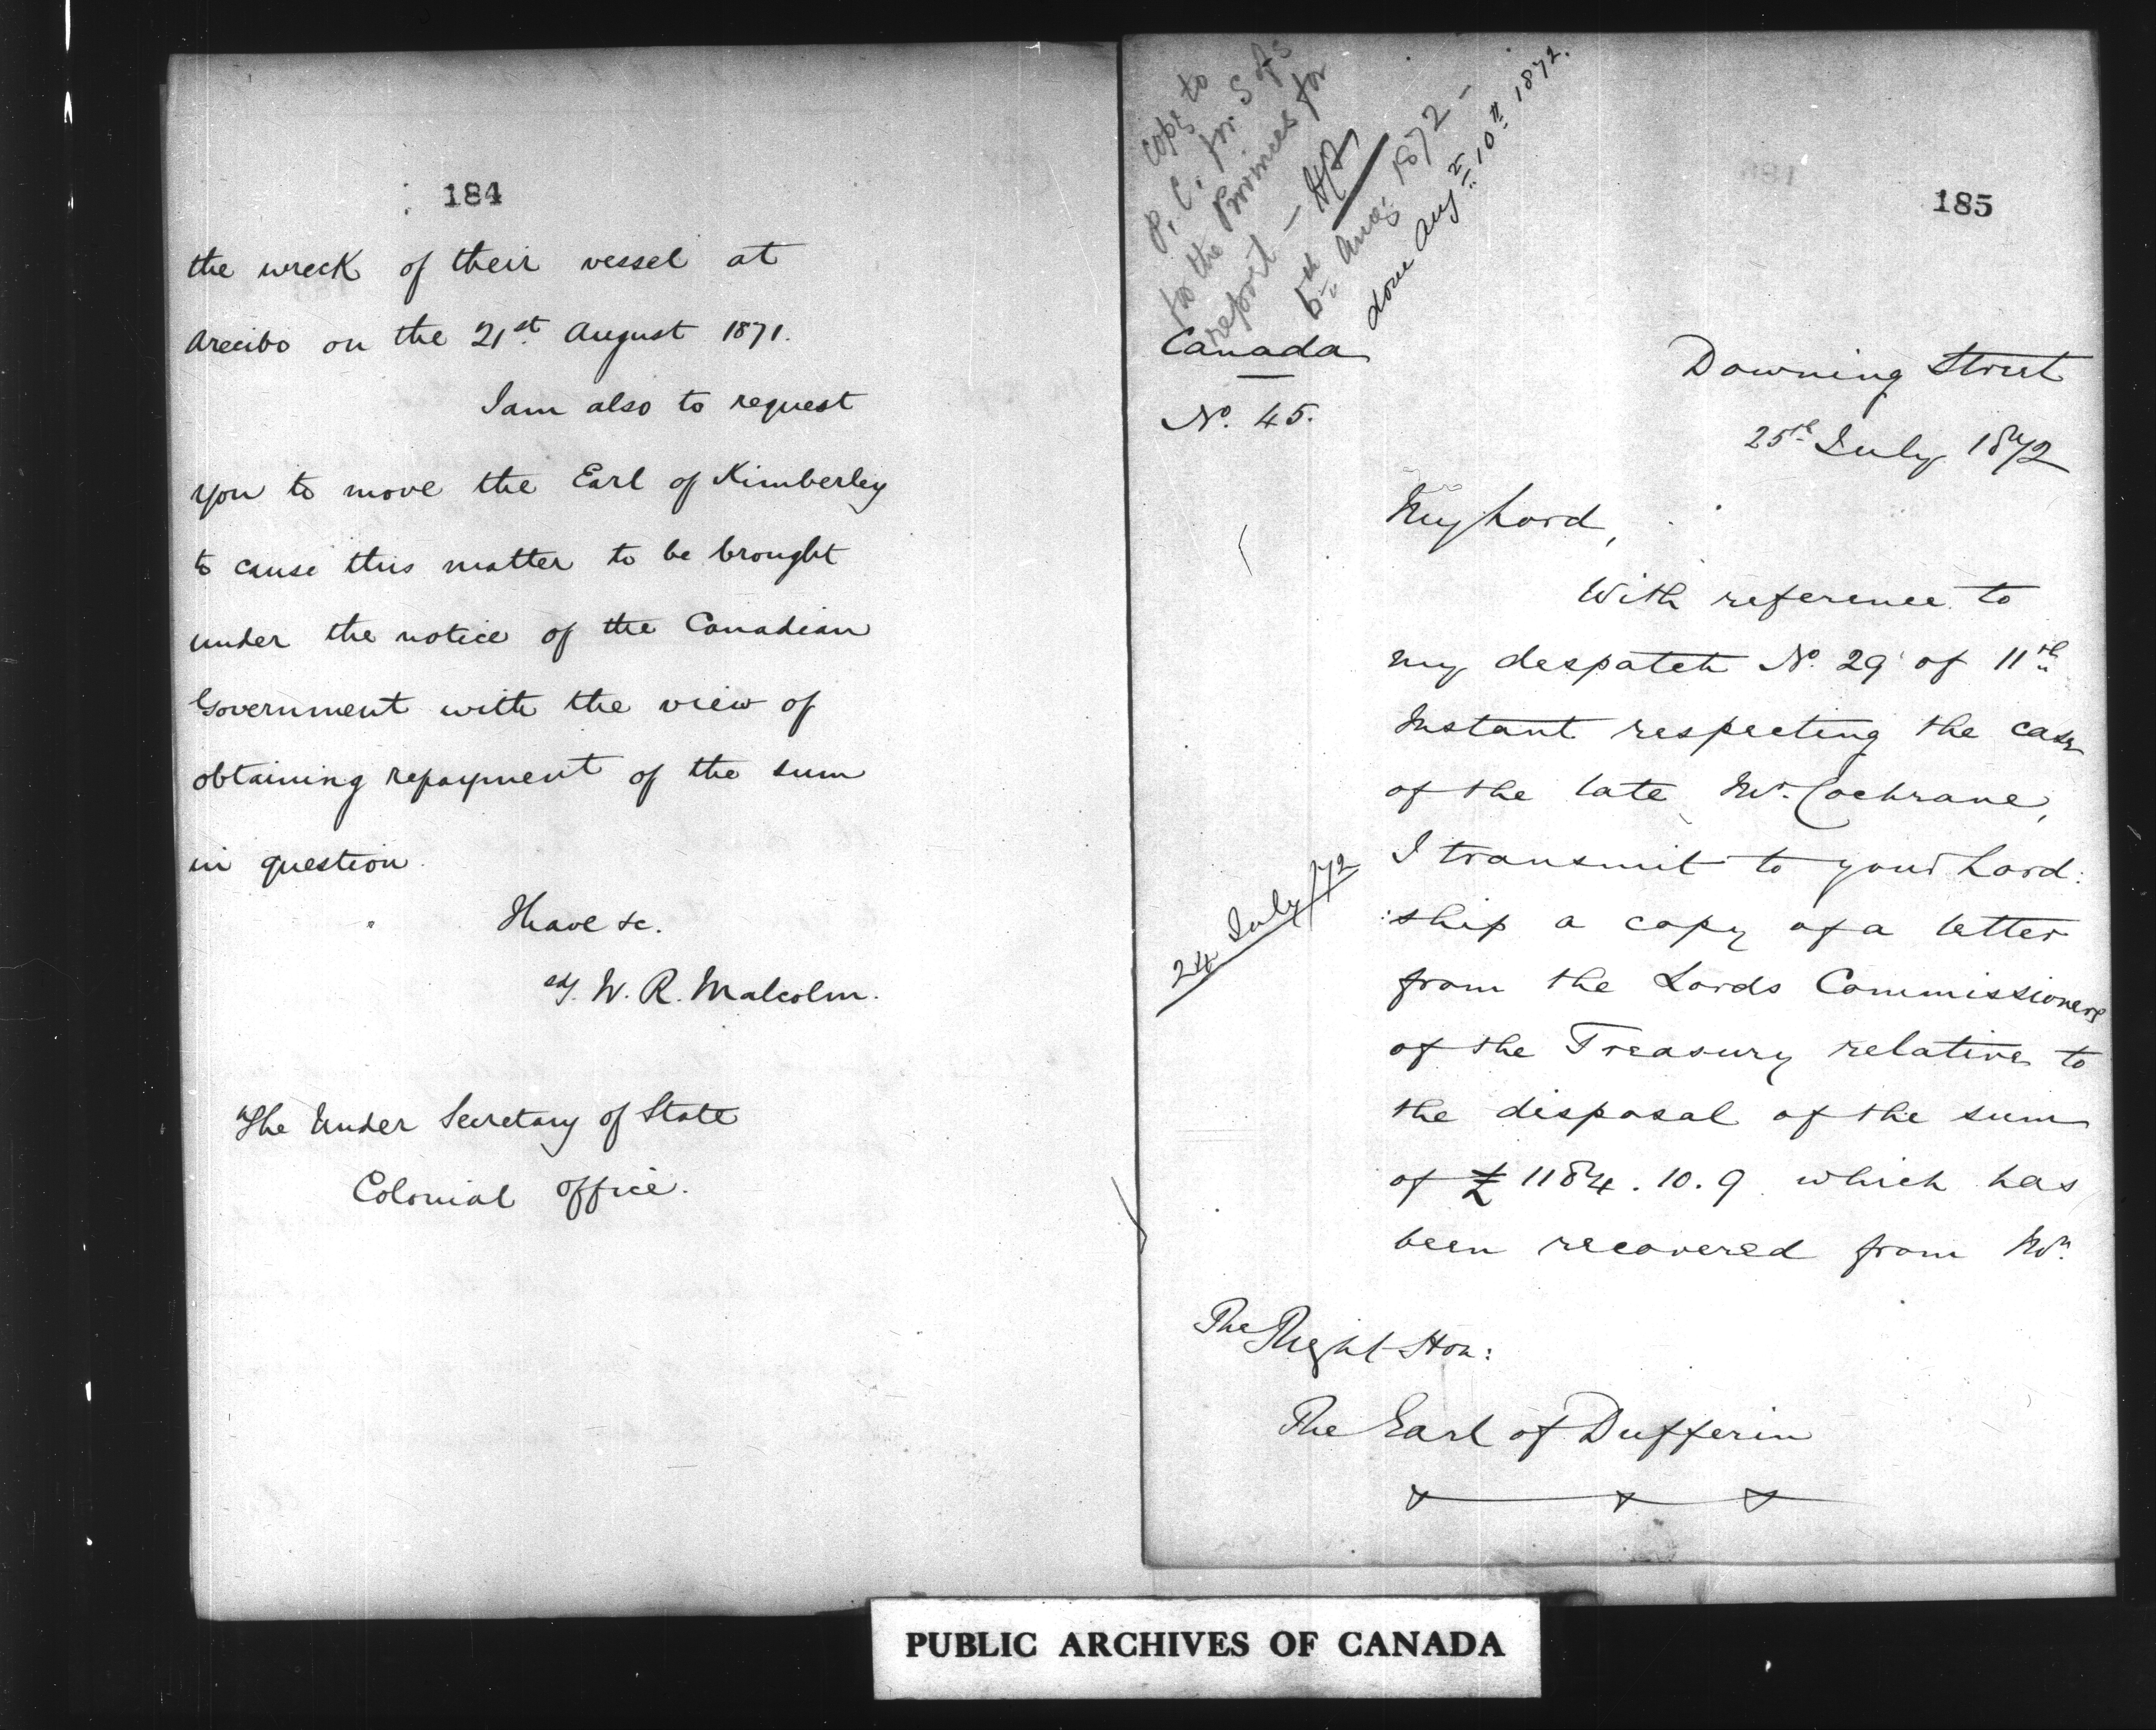 184
the wreck of their vessel at
Arecibo on the 21st August 1871.
I am also to request
you to move the Earl of Kimberley
to cause this matter to be brought
under the notice of the Canadian
Government with the view of
obtaining repayment of the sum
in question.
I have &c.
sd/. W. R. Malcolm.
The Under Secretary of State
Colonial Office.
185
Copy to
P. C. for S of S
for the Provinces for
report —
5th Aug: 1872 —
done Augt 10th 1872.
Canada
No. 45.
Downing Street
25th July 1872
My Lord,
With reference to
my despatch No. 29 of 11th
Instant respecting the case
of the late Mr. Cochrane,
24 July/72
I transmit to your Lord:
:ship a copy of a letter
from the Lords Commissioners
of the Treasury relative to
the disposal of the sum
of £1184.10.9 which has
been recovered from Mr.
The Right Hon:
The Earl of Dufferin
PUBLIC ARCHIVES OF CANADA